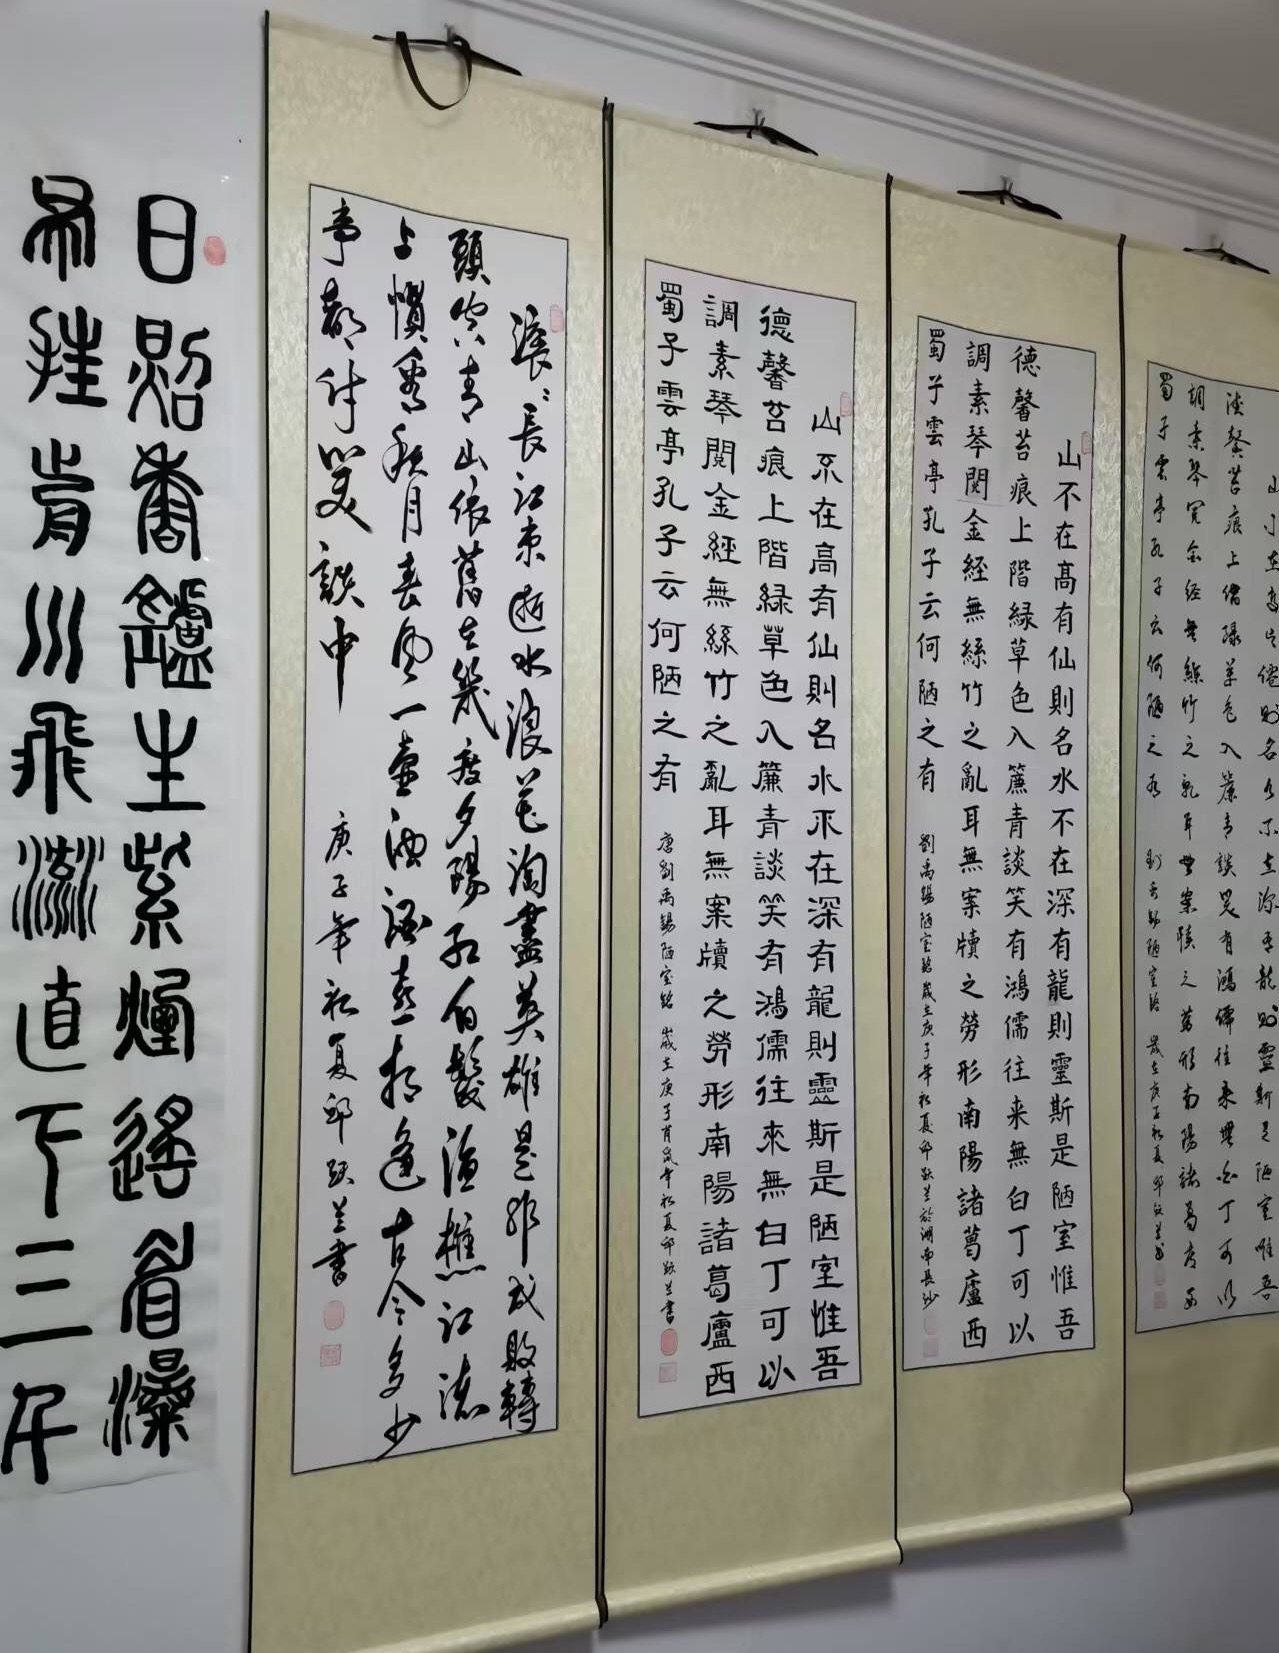 日照香鑪生紫煙遙看瀑
布挂前川飛流直下三千
滾滾長江東逝水浪花淘盡英雄是非成敗轉
頭空青山依舊在幾度夕陽紅白髮漁樵江渚
上慣看秋月春風一壺濁酒喜相逢古今多少
事都付笑談中
庚子年初夏邱跃兰書
山不在高有仙則名水不在深有龍則靈斯是陋室惟吾
德馨苔痕上階緑草色入簾青談笑有鴻儒往來無白丁可以
調素琴閱金經無絲竹之亂耳無案牘之勞形南陽諸葛廬西
蜀子雲亭孔子云何陋之有
唐劉禹錫陋室銘 歲在庚子肖鼠年初夏邱跃兰書
山不在高有仙則名水不在深有龍則靈斯是陋室惟吾
德馨苔痕上階緑草色入簾青談笑有鴻儒往来無白丁可以
調素琴閱金經無絲竹之亂耳無案牘之勞形南陽諸葛廬西
蜀子雲亭孔子云何陋之有
劉禹錫陋室銘歲在庚子年初夏邱跃兰於湖南長沙
山不在高有僊則名水不在深有龍則靈斯是陋室惟吾
德馨苔痕上階緑草色入簾青談笑有鴻儒往来無白丁可以
調素琴閱金經無絲竹之亂耳無案牘之勞形南陽諸葛廬西
蜀子雲亭孔子云何陋之有
劉禹錫陋室銘 歲在庚子初夏邱跃兰書